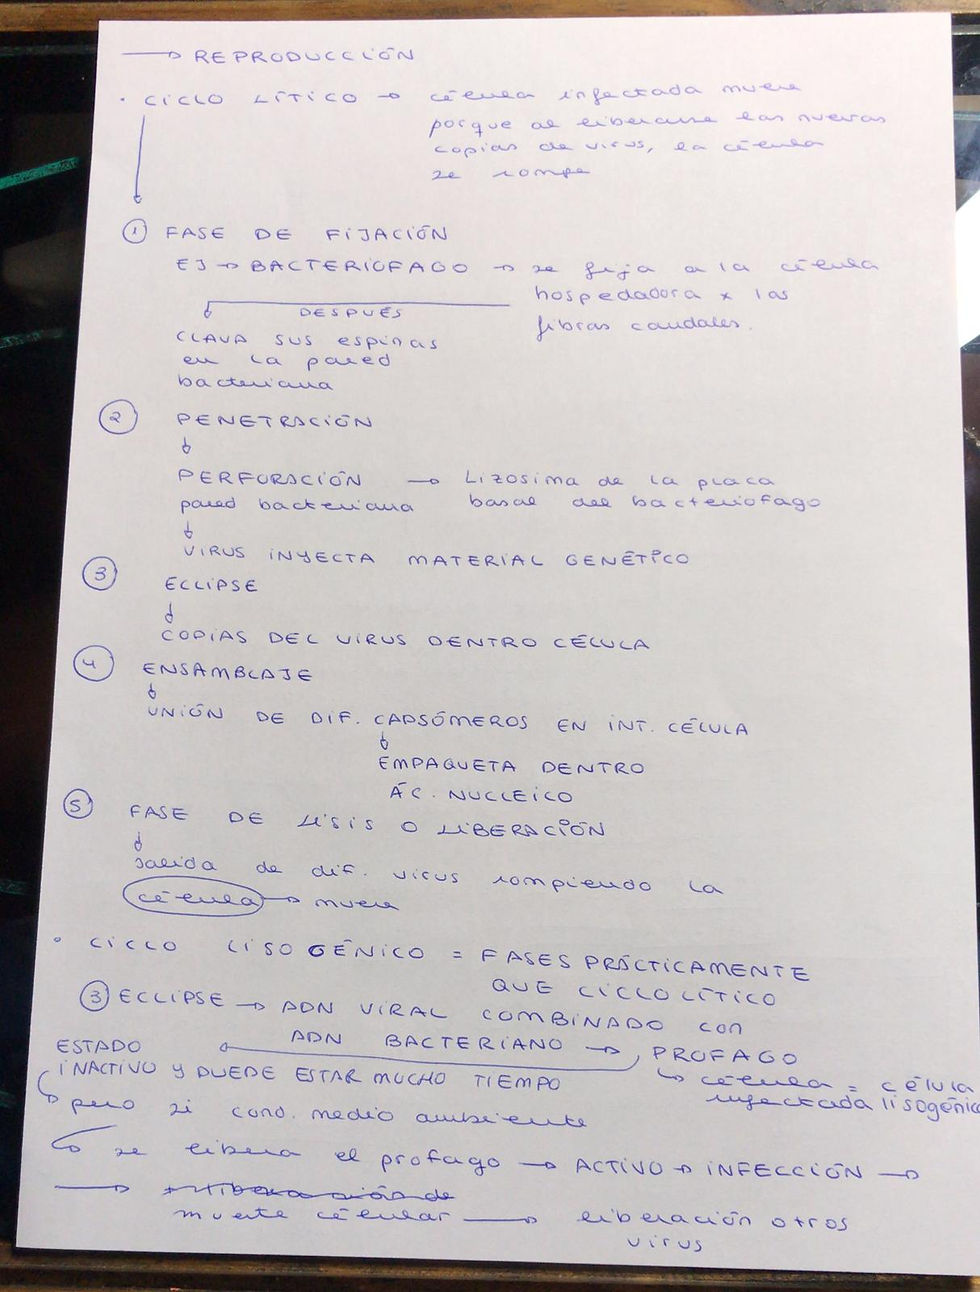 → REPRODUCCIÓN
· CICLO LÍTICO → célula infectada muere
porque al liberarse las nuevas
copias de virus, la célula
se rompe
① FASE DE FIJACIÓN
EJ → BACTERIÓFAGO → se fija a la célula
hospedadora x las
fibras caudales.
DESPUÉS
CLAVA SUS espinas
en la pared
bacteriana
② PENETRACIÓN
↓
PERFORACIÓN → LIZOSIMA de la placa
pared bacteriana basal del bacteriófago
↓
VIRUS INYECTA MATERIAL GENÉTICO
③ ECLIPSE
↓
COPIAS DEL VIRUS DENTRO CÉLULA
④ ENSAMBLAJE
↓
UNIÓN DE DIF. CAPSÓMEROS EN INT. CÉLULA
↓
EMPAQUETA DENTRO
ÁC. NUCLEICO
⑤ FASE DE LISIS O LIBERACIÓN
↓
salida de dif. virus rompiendo la
célula → muere
· CICLO LISOGÉNICO = FASES PRÁCTICAMENTE
QUE CICLO LÍTICO
③ ECLIPSE → ADN VIRAL COMBINADO con
ADN BACTERIANO → PROFAGO
↳ célula = célula
infectada lisogénic
ESTADO
INACTIVO Y PUEDE ESTAR MUCHO TIEMPO
↳ pero si cond. medio ambiente
↳ se libera el profago → ACTIVO → INFECCIÓN →
→ muerte célular → liberación otros
virus